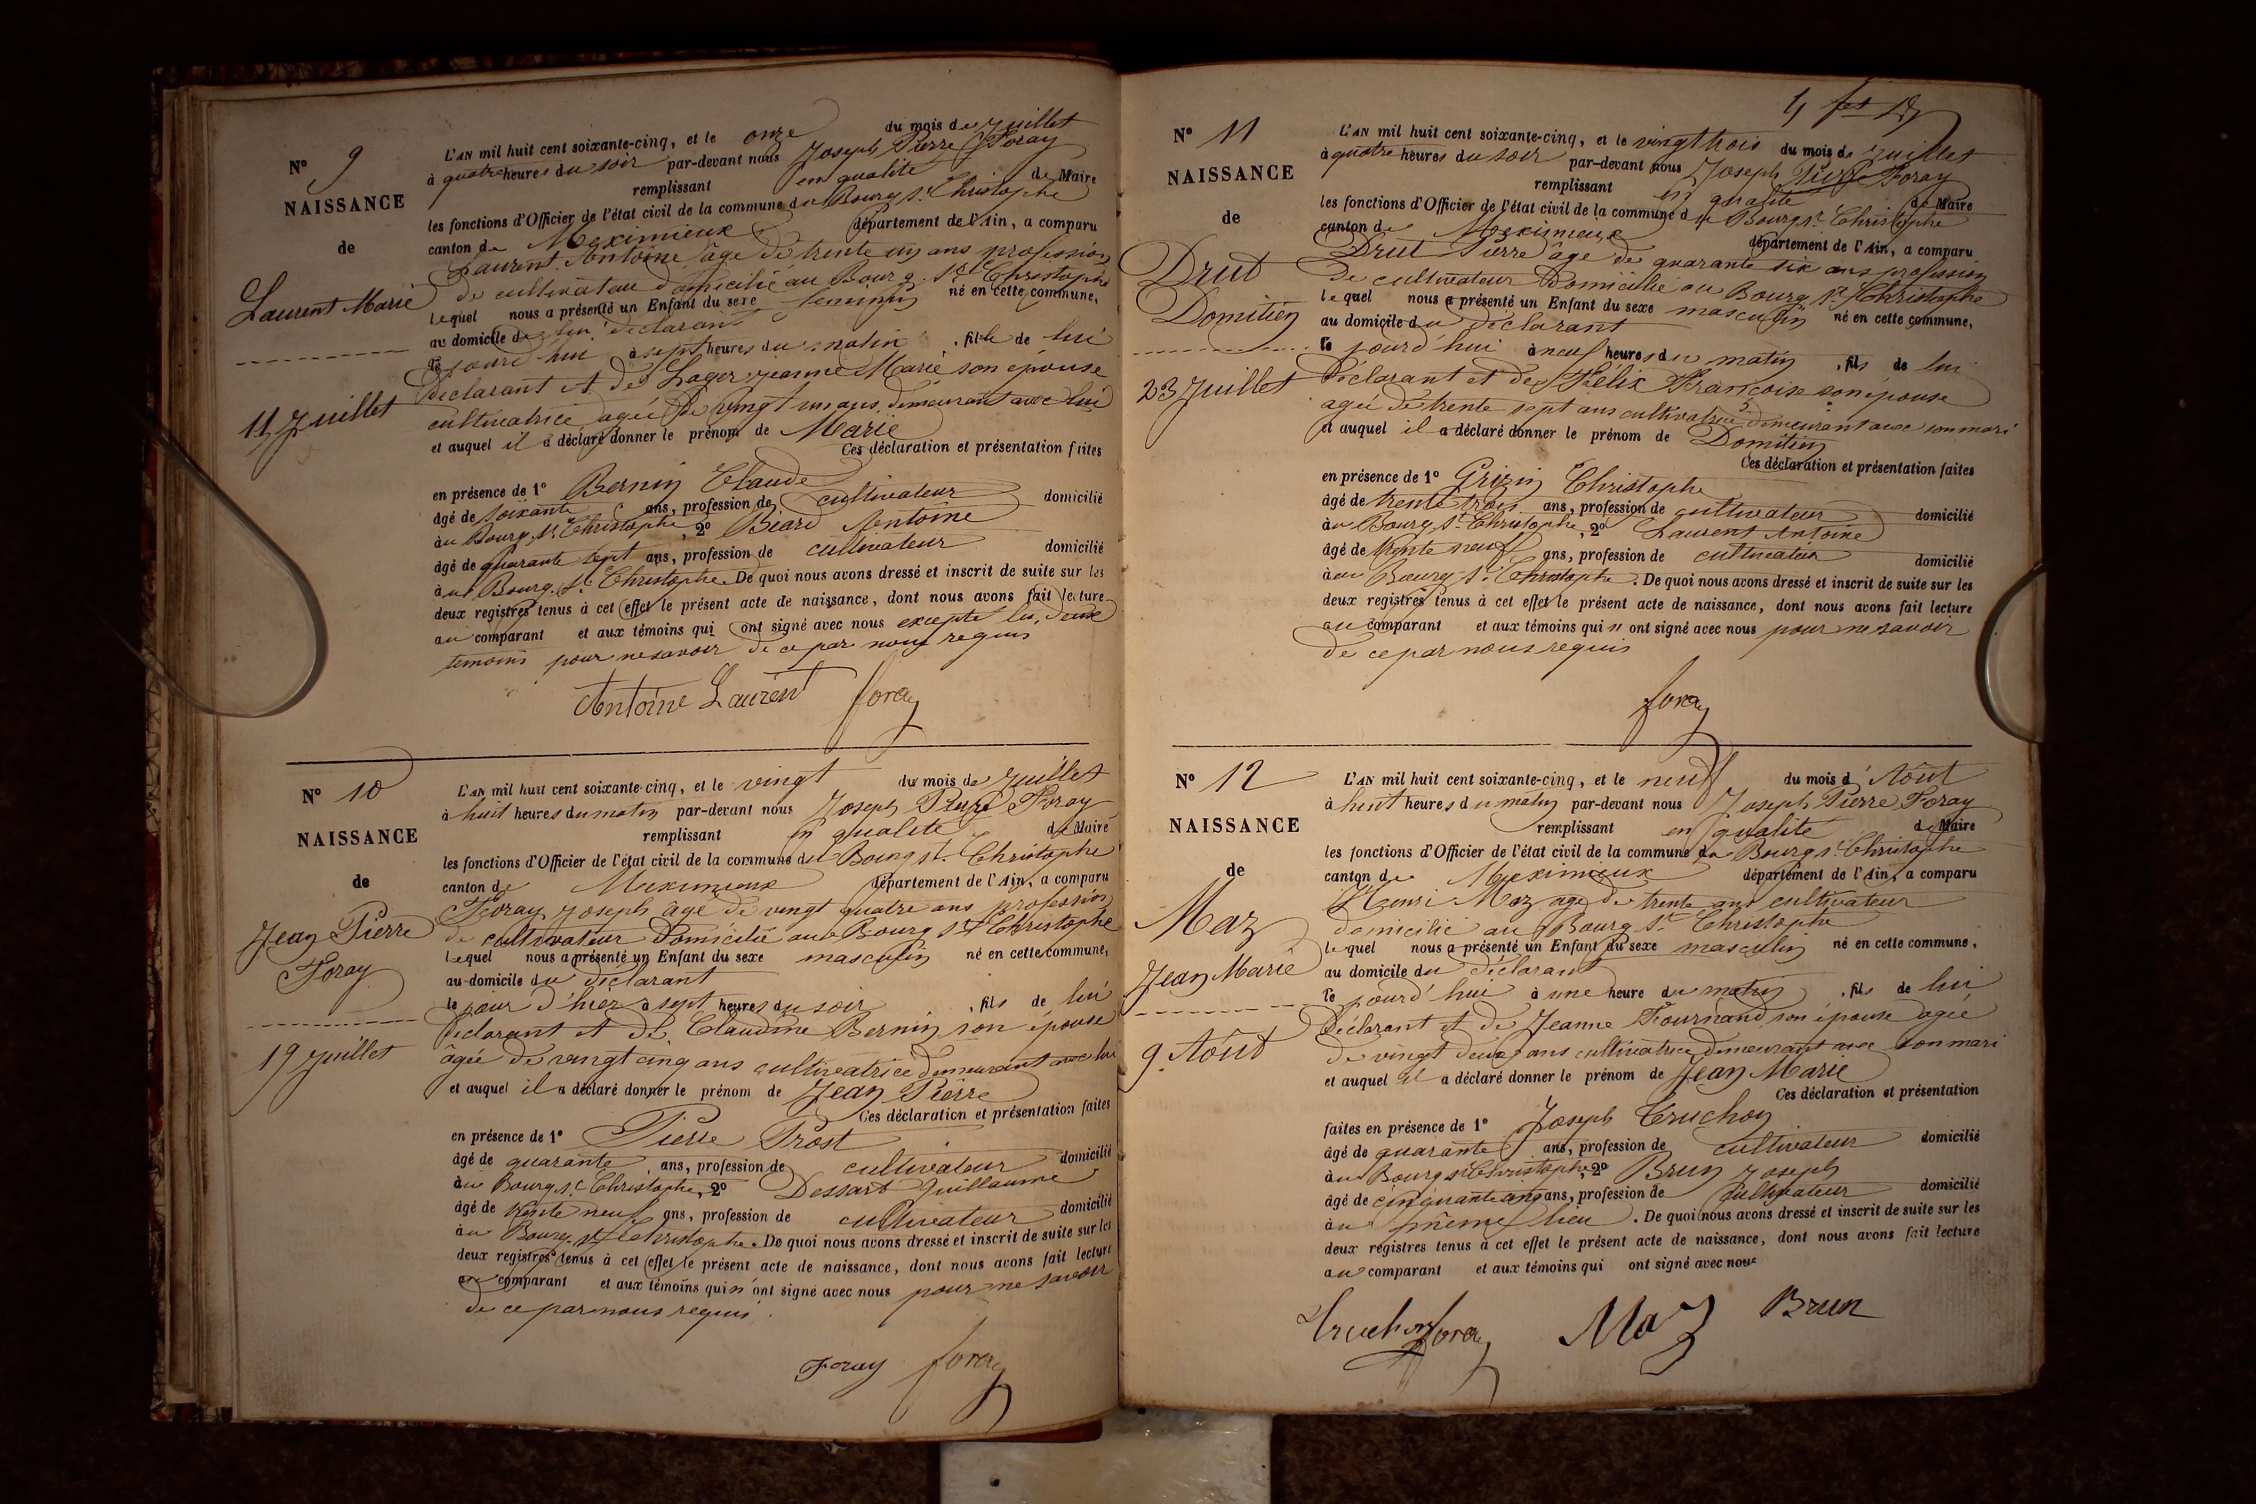 N° 9
NAISSANCE
de
Laurent Marie
11 Juillet
L'AN mil huit cent soixante-cinq, et le onze du mois de Juillet
à quatre heures du soir par-devant nous Joseph Pierre Foray
remplissant en qualité de Maire
les fonctions d'Officier de l'état civil de la commune du Bourg St Christophe
canton de Meximieux département de l'Ain, a comparu
Laurent Antoine âgé de trente un ans profession
de cultivateur domicilié au Bourg St Christophe
lequel nous a présenté un Enfant du sexe feminin né en cette commune,
au domicile de lui déclarant
le jourd'hui à sept heures du matin , fille de lui
déclarant et de Lager Jeanne Marie son épouse
cultivatrice agée de vingt un ans demeurant avec lui
et auquel il a déclaré donner le prénom de Marie
Ces déclaration et présentation faites
en présence de 1° Bernin Claude
âgé de soixante ans, profession de cultivateur domicilié
au Bourg St Christophe, 2° Béard Antoine
âgé de quarante sept ans, profession de cultivateur domicilié
au Bourg St Christophe. De quoi nous avons dressé et inscrit de suite sur les
deux registres tenus à cet effet le présent acte de naissance, dont nous avons fait lecture
au comparant et aux témoins qui ont signé avec nous excepté les deux
temoins pour ne savoir de ce par nous requis
Antoine Laurent foray
N° 10
NAISSANCE
de
Jean Pierre
Foray
19 Juillet
L'AN mil huit cent soixante-cinq, et le vingt du mois de Juillet
à huit heures du matin par-devant nous Joseph Pierre Foray
remplissant en qualité de Maire
les fonctions d'Officier de l'état civil de la commune du Bourg St Christophe
canton de Meximieux département de l'Ain, a comparu
Foray Joseph âgé de vingt quatre ans profession
de cultivateur domicilié au Bourg St Christophe
lequel nous a présenté un Enfant du sexe masculin né en cette commune,
au domicile du déclarant
le jour d'hier à sept heures du soir , fils de lui
déclarant et de Claudine Bernin son épouse
âgée de vingt cinq ans cultivatrice demeurant avec lui
et auquel il a déclaré donner le prénom de Jean Pierre
Ces déclaration et présentation faites
en présence de 1° Pierre Prost
âgé de quarante ans, profession de cultivateur domicilié
au Bourg St Christophe, 2° Dessart Guillaume
âgé de trente neuf ans, profession de cultivateur domicilié
au Bourg St Christophe. De quoi nous avons dressé et inscrit de suite sur les
deux registres tenus à cet effet le présent acte de naissance, dont nous avons fait lecture
au comparant et aux témoins qui n'ont signé avec nous pour ne savoir
de ce par nous requis.
Foray foray
N° 11
NAISSANCE
de
Drut
Domitien
23 Juillet
L'AN mil huit cent soixante-cinq, et le vingt trois du mois de Juillet
à quatre heures du soir par-devant nous Joseph Pierre Foray
remplissant en qualité de Maire
les fonctions d'Officier de l'état civil de la commune du Bourg St Christophe
canton de Meximieux département de l'Ain, a comparu
Drut Pierre âgé de quarante six ans profession
de cultivateur domicilié au Bourg St Christophe
lequel nous a présenté un Enfant du sexe masculin né en cette commune,
au domicile du déclarant
le jourd'hui à neuf heures du matin , fils de lui
déclarant et de Félix Françoise son épouse
agée de trente sept ans cultivatrice demeurant avec son mari
et auquel il a déclaré donner le prénom de Domitien
Ces déclaration et présentation faites
en présence de 1° Grizin Christophe
âgé de trente trois ans, profession de cultivateur domicilié
au Bourg St Christophe, 2° Laurent Antoine
âgé de trente neuf ans, profession de cultivateur domicilié
au Bourg St Christophe. De quoi nous avons dressé et inscrit de suite sur les
deux registres tenus à cet effet le présent acte de naissance, dont nous avons fait lecture
au comparant et aux témoins qui n ont signé avec nous pour ne savoir
de ce par nous requis
foray
N° 12
NAISSANCE
de
Maz
Jean Marie
9 Aôut
L'AN mil huit cent soixante-cinq, et le neuf du mois d'Aôut
à huit heures du matin par-devant nous Joseph Pierre Foray
remplissant en qualité de Maire
les fonctions d'Officier de l'état civil de la commune du Bourg St Christophe
canton de Meximieux département de l'Ain, a comparu
Henri Maz agé de trente ans cultivateur
domicilié au Bourg St Christophe
lequel nous a présenté un Enfant du sexe masculin né en cette commune,
au domicile du déclarant
le jourd'hui à une heure du matin , fils de lui
déclarant et de Jeanne Fournand son épouse agée
de vingt deux ans cultivatrice demeurant avec son mari
et auquel il a déclaré donner le prénom de Jean Marie
Ces déclaration et présentation
faites en présence de 1° Joseph Truchon
âgé de quarante ans, profession de cultivateur domicilié
au Bourg St Christophe, 2° Brun Joseph
âgé de cinquante cinq ans, profession de cultivateur domicilié
au même lieu. De quoi nous avons dressé et inscrit de suite sur les
deux registres tenus à cet effet le présent acte de naissance, dont nous avons fait lecture
au comparant et aux témoins qui ont signé avec nous
Truchon foray Maz Brun